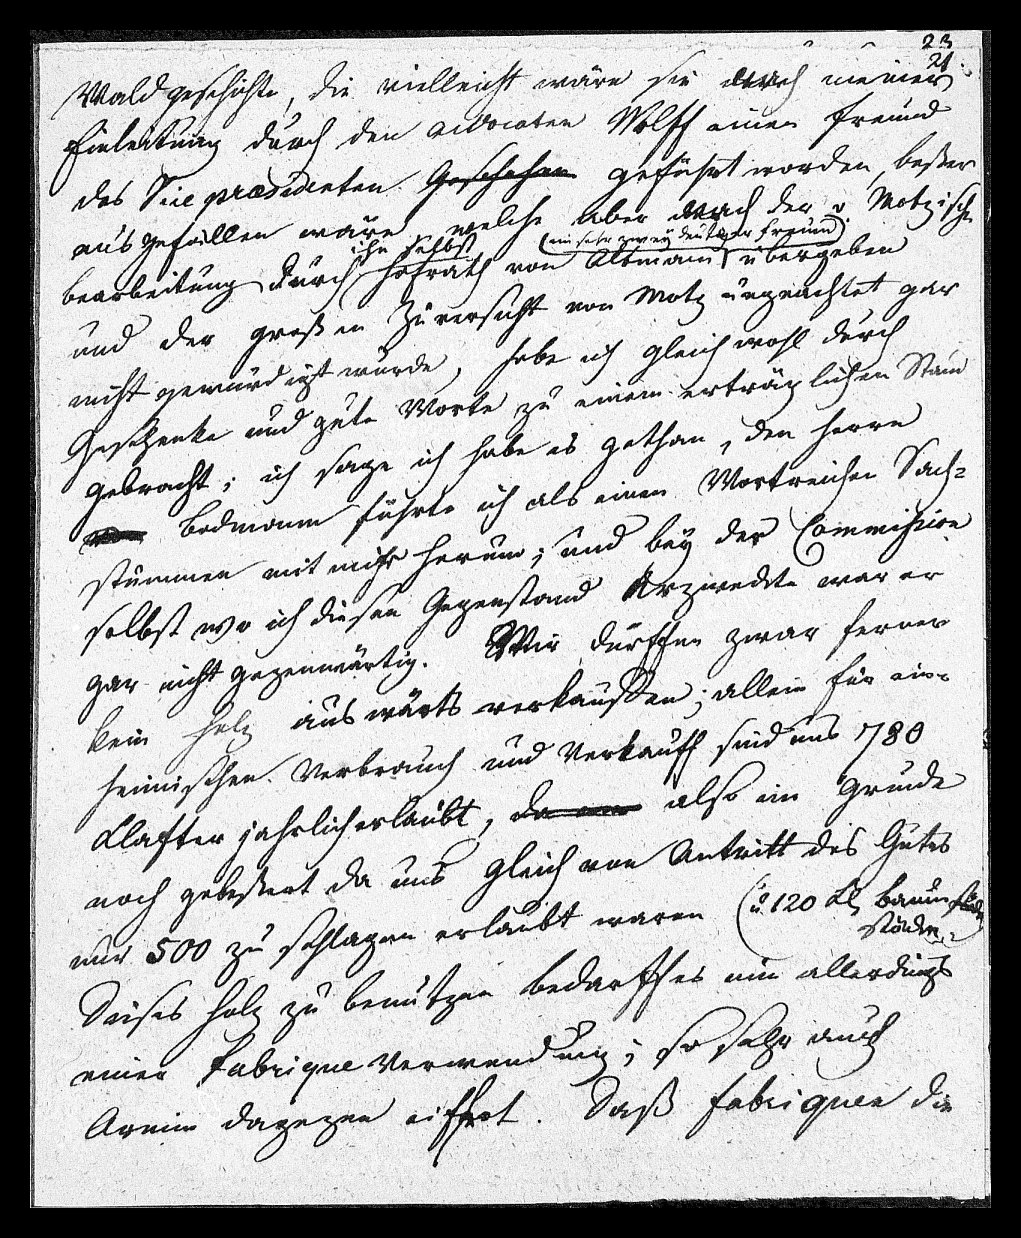 23
21
Waldgeschichte, die vielleicht wäre sie nach meiner
Einleitung durch den advocaten Wolff einen Freund
des Vice præsidenten Geschehen geführt worden, beßer
ausgefallen wäre, welche aber nach der v. Motzische
ihn selbst (ein sehr zweydeutiger Freund)
bearbeitung durch Hofrath von Altmann übergeben
und der großen Zuversicht von Motz ungeachtet gar
nicht gewürdigt wurde, habe ich gleichwohl durch
Geschenke und gute Worte zu einem erträglichen Stand
gebracht; ich sage ich habe es gethan, den Herrn
Bodmann führte ich als einen Wortreichen Sach-
stummen mit mir herum; und bey der Commission
selbst wo ich diesen Gegenstand bezweckte war er
gar nicht gegenwärtig. Wir dürffen zwar ferner
kein Holz auswärts verkauffen; allein für ein-
heimischen Verbrauch und Verkauff sind uns 780
Klafter jahrlich erlaubt, also im Grunde
noch gebeßert da uns gleich vor Antritt des Gutes
nur 500 zu schlagen erlaubt waren (u 120 Kl Baum
stöcke
Dieses Holz zu benutzen bedarff es nun allerdings
einer Fabrique Verwendung; so sehr auch
Armin dagegen eiffert. Daß Fabriquen die